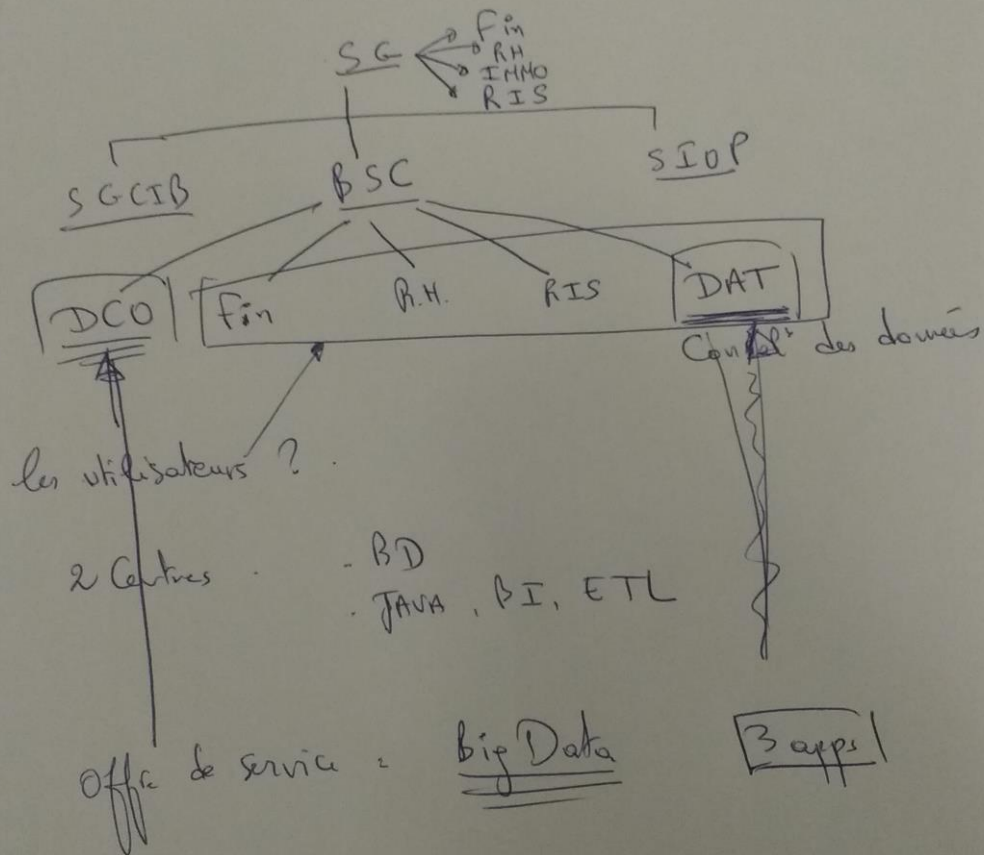 SG
Fin
RH
IMMO
RIS
SGCIB
BSC
SIOP
DCO
Fin
R.H.
RIS
DAT
des données
les utilisateurs ?
2 Centres . . BD
. JAVA , BI, ETL
Offre de service : Big Data
3 apps